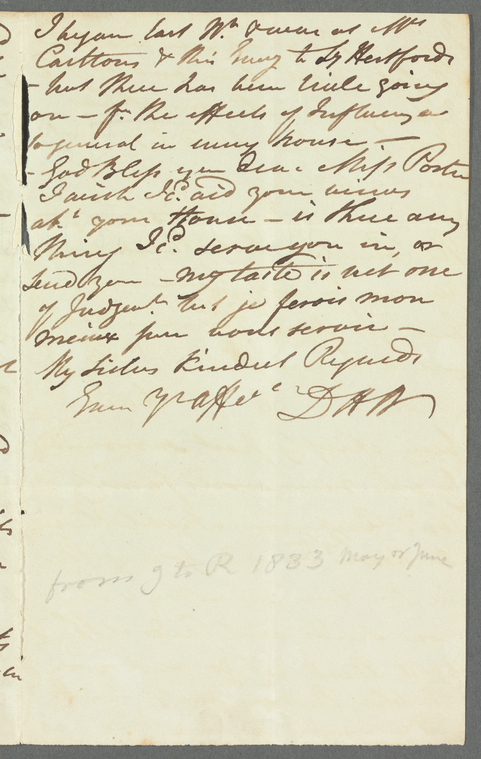 I began last Wk & was at Mrs
Carltons & this Eveg to Ly Hertfords
- but there has been little going
on - fr. the effects of Influenza
so general in every house -
- God Bless you Dear Miss Porter
I wish I cd. aid your views
abt. your House - is there any
thing I cd. serve you in, or
send you - my taste is not one
of Judgent. but je ferois mon
mieux pour vous servir -
My Sisters kindest Regards
Ever Yr affect
from 9 to R 1833 May or June